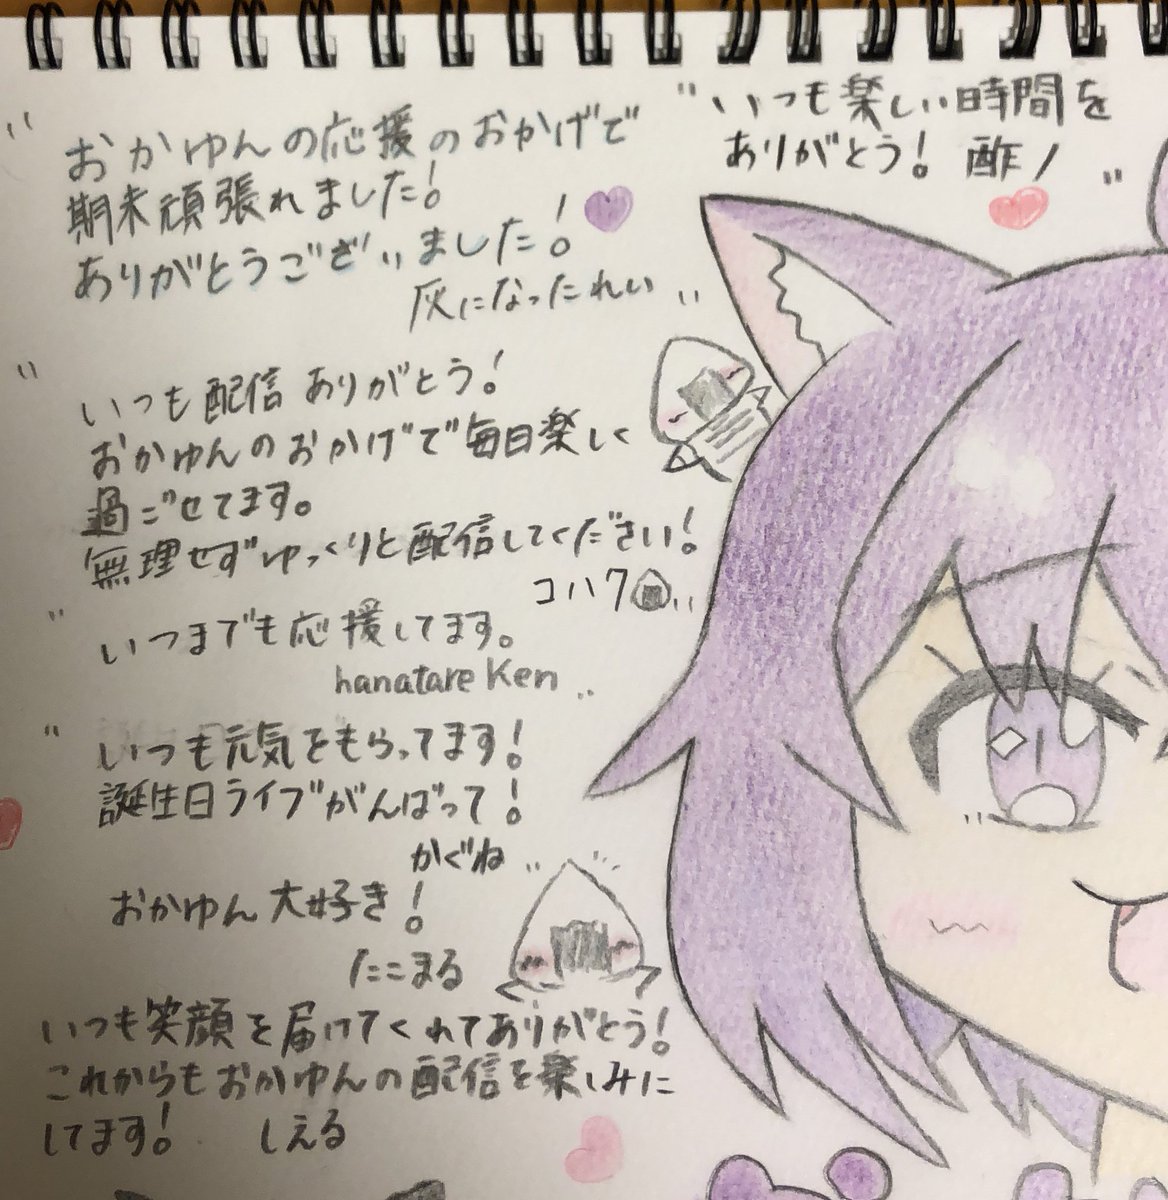 "おかゆんの応援のおかげで
期末頑張れました!
ありがとうございました!
灰になったれい"
"いつも楽しい時間を
ありがとう! 酢ノ"
"いつも配信ありがとう!
おかゆんのおかげで毎日楽しく
過ごせてます。
無理せずゆっくりと配信してください!
コハク"
"いつまでも応援してます。
hanatare Ken"
"いつも元気をもらってます!
誕生日ライブがんばって!
かぐね"
おかゆん大好き!
たこまる
いつも笑顔を届けてくれてありがとう!
これからもおかゆんの配信を楽しみに
してます! しえる